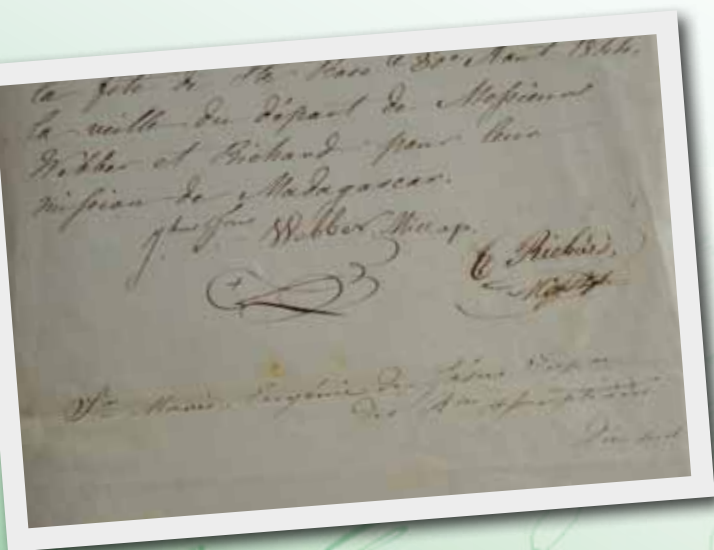 la fête de Ste Rose le 30 Août 1844.
la veille du départ de Messieurs
Webber et Richard pour leur
mission de Madagascar.
Webber Miss. ap.
Richard,
Sr Marie Eugénie de Jésus
de l'Assomption